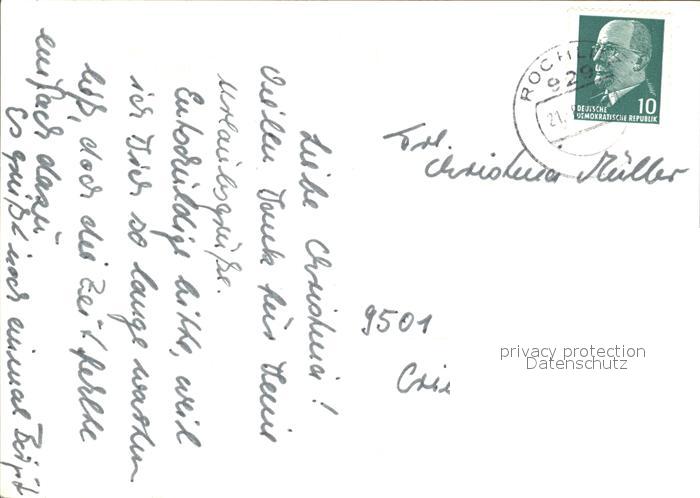 Liebe Christina!
Vielen Dank für Deine
Urlaubsgrüße.
Entschuldige bitte, weil
ich Dich so lange warten
ließ, doch die Zeit fehlte
einfach dazu
Es grüßt noch einmal Birgit
ROCHLI
929
21.
DEUTSCHE
DEMOKRATISCHE REPUBLIK
10
Frl.
Christina Müller
9501
Cri
privacy protection
Datenschutz